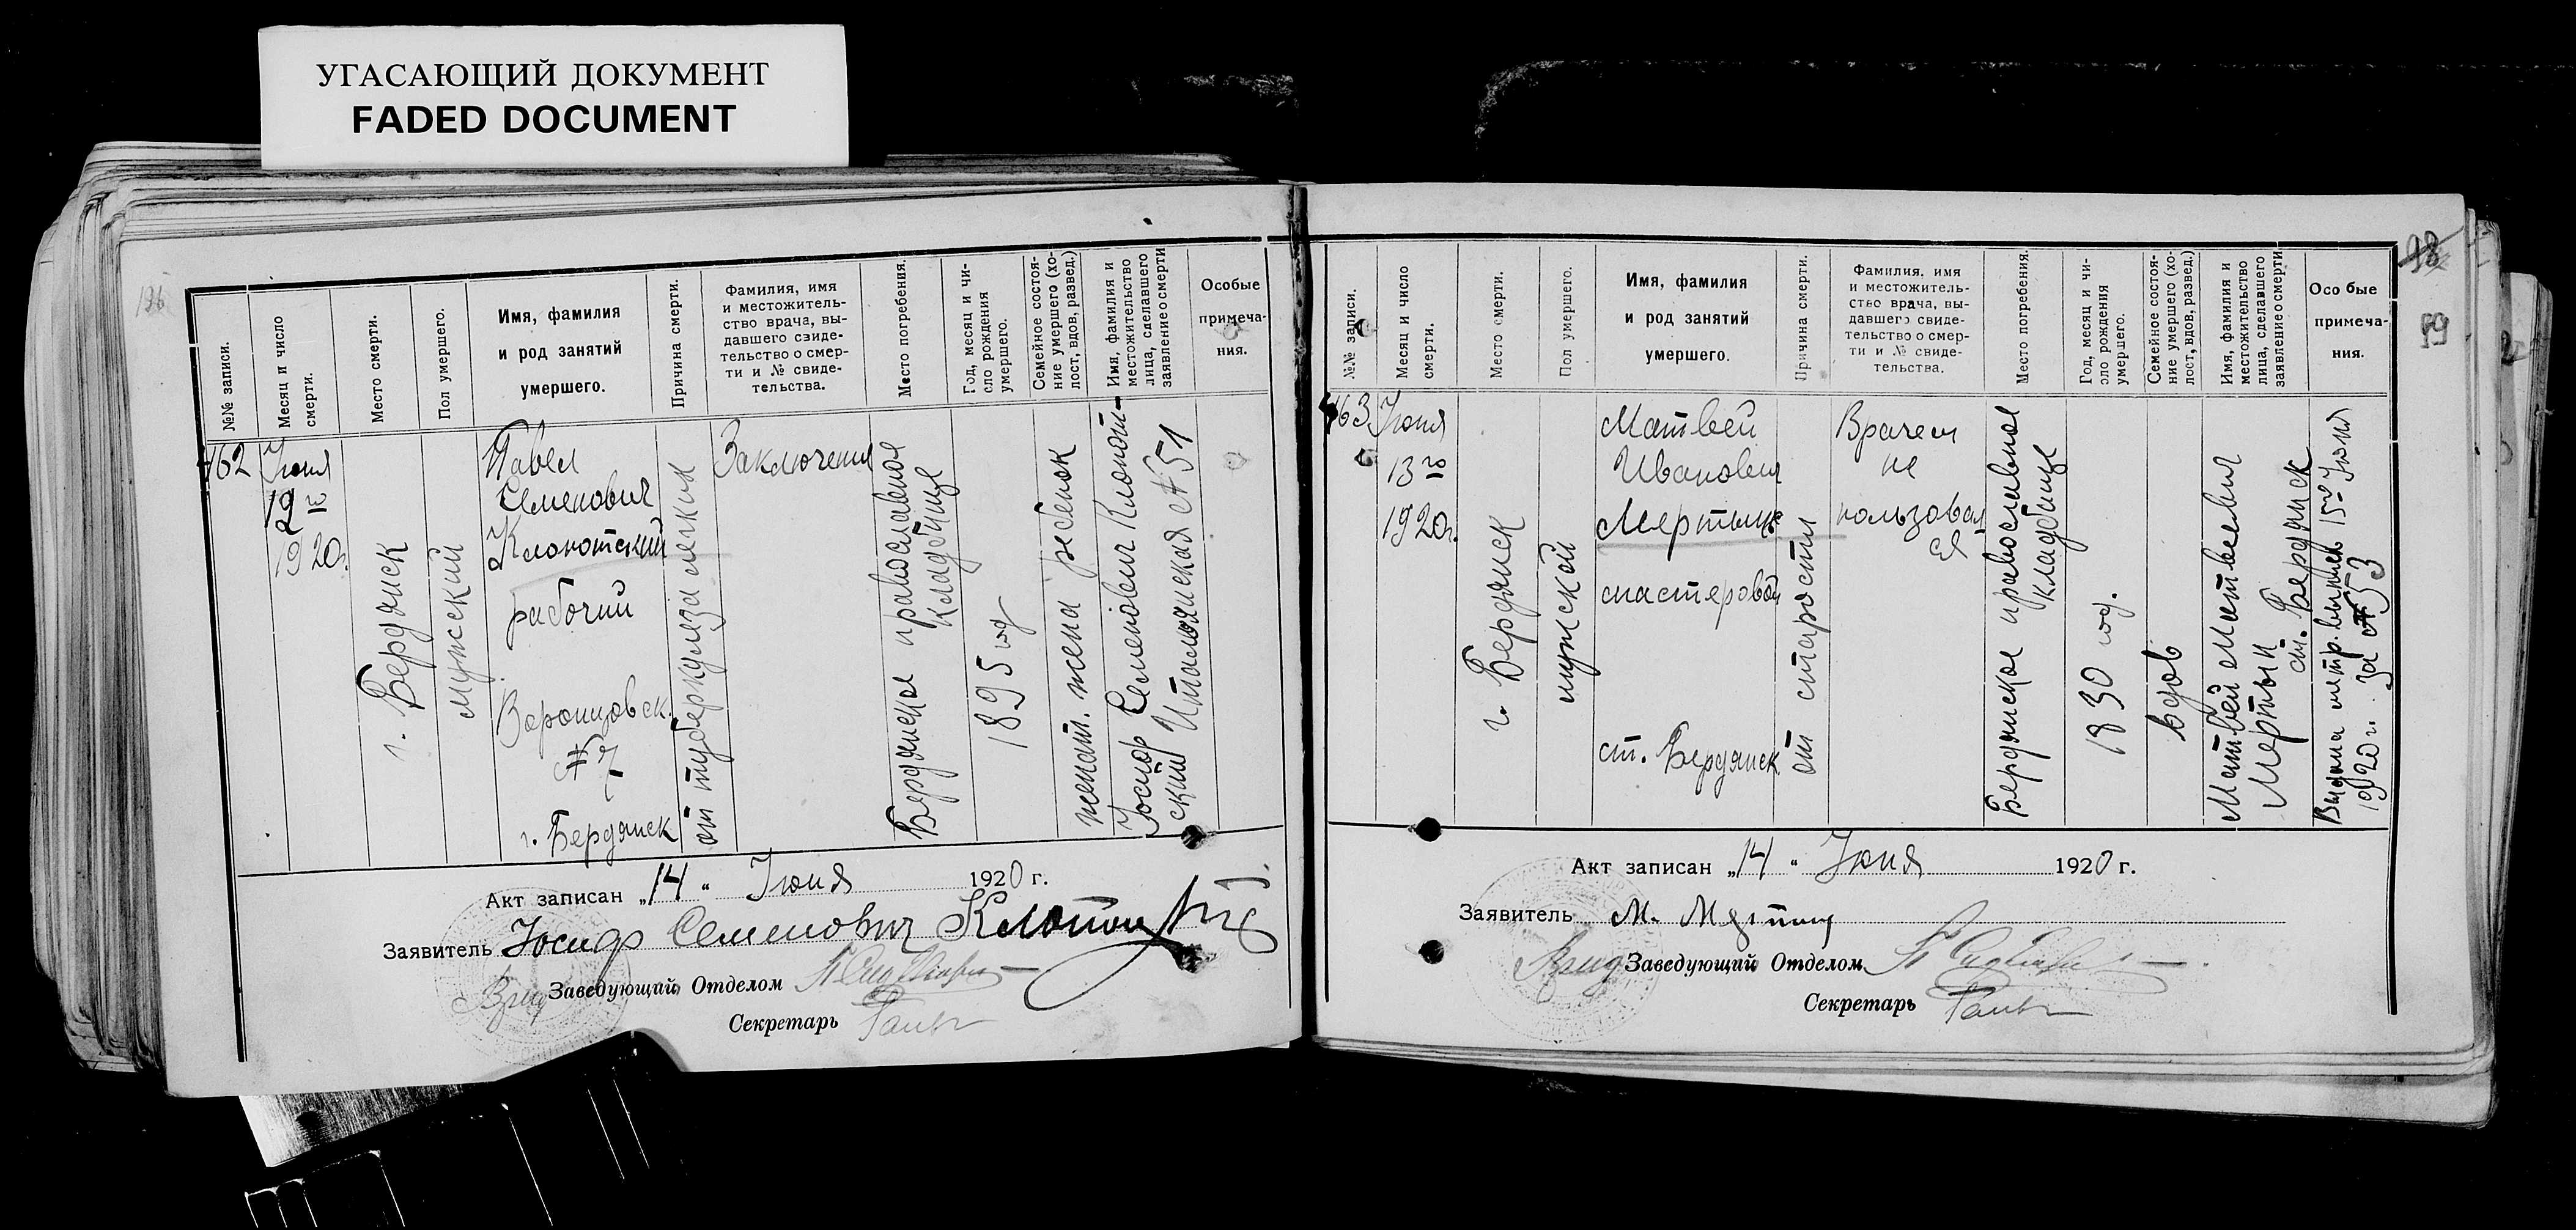 УГАСАЮЩИЙ ДОКУМЕНТ
FADED DOCUMENT
№№ записи.
Месяц и число
смерти.
Место смерти.
Пол умершего.
Имя, фамилия
и род занятий
умершего.
Причина смерти.
Фамилия, имя
и местожитель-
ство врача, вы-
давшего свиде-
тельство о смер-
ти и № свиде-
тельства.
Место погребения.
Год, месяц и чи-
сло рождения
умершего.
Семейное состоя-
ние умершего (хо-
лост, вдов, развед.)
Имя, фамилия и
местожительство
лица, сделавшего
заявление о смерти
Особые
примеча-
ния.
462
Июня
12го
1920г.
г. Бердянск
мужской
Павел
Семенович
Клопотский
рабочий
Воронцовск.
№ 7
г. Бердянск
от туберкулеза легких
Заключения
Бердянское православное
кладбище
1895 год
женат. жена ребенок
Иосиф Семенович Клопот-
ский Итальянская № 51
Акт записан „14“ Июня 1920 г.
Заявитель Иосиф Семенович Клопотский
Врид Заведующий Отделом
Секретарь
98
99
№№ записи.
Месяц и число
смерти.
Место смерти.
Пол умершего.
Имя, фамилия
и род занятий
умершего.
Причина смерти.
Фамилия, имя
и местожитель-
ство врача, вы-
давшего свиде-
тельство о смер-
ти и № свиде-
тельства.
Место погребения.
Год, месяц и чи-
сло рождения
умершего.
Семейное состоя-
ние умершего (хо-
лост, вдов, развед.)
Имя, фамилия и
местожительство
лица, сделавшего
заявление о смерти
Особые
примеча-
ния.
463
Июня
13го
1920г.
г. Бердянск
мужской
Матвей
Иванович
Мертый
мастеровой
ст. Бердянск
от старости
Врачем
не
пользовал
ся
Бердянское православное
кладбище
1830 год.
вдов
Матвей Матвеевич
Мертый
ст. Бердянск
Выдана метр. выпись 15го Июня
1920 г. за № 53
Акт записан „14“ Июня 1920 г.
Заявитель М. Мертый
Врид Заведующий Отделом
Секретарь